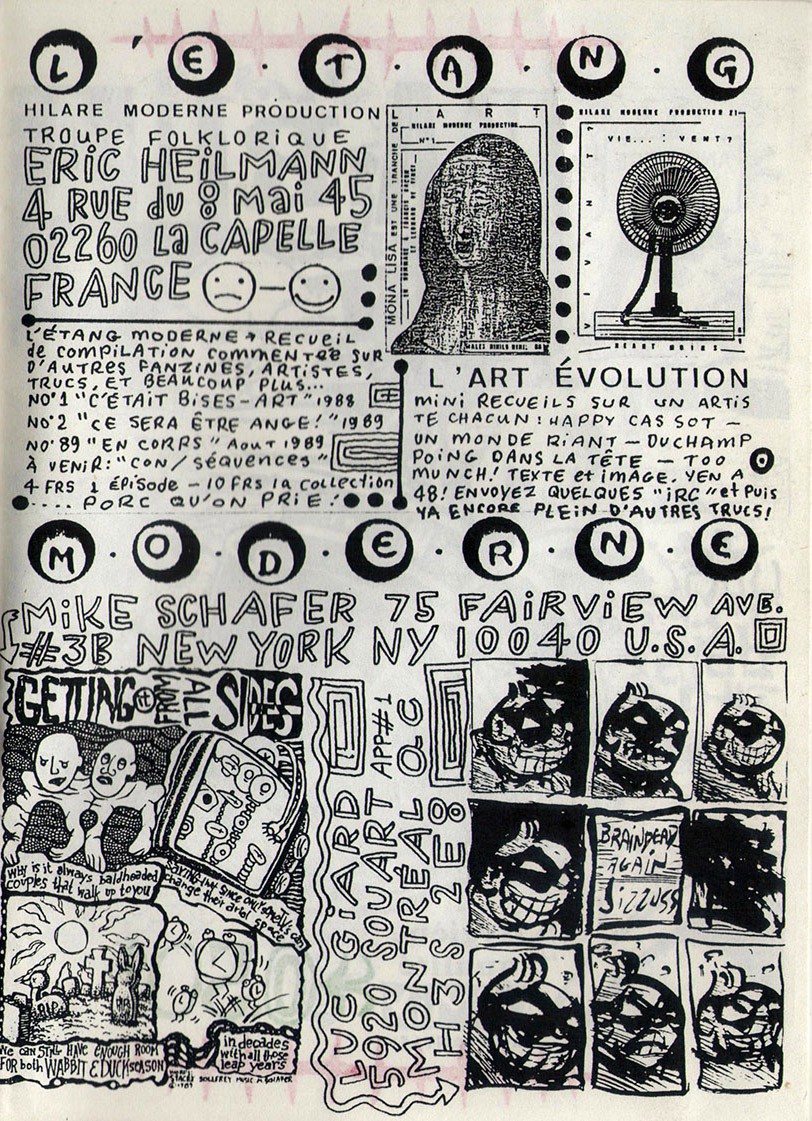 L'ETANG
HILARE MODERNE PRODUCTION
TROUPE FOLKLORIQUE
ERIC HEILMANN
4 RUE du 8 Mai 45
02260 La CAPELLE
FRANCE
L'ART
HILARE MODERNE PRODUCTION
N°1
MONA LISA EST UNE TRANCHE DE
HILARE MODERNE PRODUCTION 21
VIE...: VENT?
VIVANT?
L'ÉTANG MODERNE → RECUEIL
de compilation commentée sur
D'AUTRES FANZINES, ARTISTES,
TRUCS, ET BEAUCOUP PLUS...
NO°1 "C'ÉTAIT BISES-ART" 1988
NO°2 "CE SERA ÊTRE ANGE!" 1989
NO°89 "EN CORPS" Aout 1989
À VENIR: "CON/séquences"
4 FRS 1 épisode - 10 FRS la collection
.... PORC QU'ON PRIE!
L'ART ÉVOLUTION
MINI RECUEILS SUR UN ARTIS
TE CHACUN: HAPPY CAS SOT -
UN MONDE RIANT - DUCHAMP
POING DANS LA TÊTE - TOO
MUNCH! TEXTE et IMAGE. YEN A
48! ENVOYEZ QUELQUES "IRC" et PUIS
YA ENCORE PLEIN D'AUTRES TRUCS!
MODERNE
MIKE SCHAFER 75 FAIRVIEW AVE.
#3B NEW YORK NY 10040 U.S.A.
GETTING it FROM ALL SIDES
Why is it always baldheaded
couples that walk up to you
saying
change their
space
We can STILL HAVE ENOUGH ROOM
FOR both WABBIT & DUCK SEASON
in decades
with all those
leap years
LUC GIARD
5920 SOUART APP#1
MONTRÉAL QC
H3S 2E8
BRAINDEAD
AGAIN
JIZZUSS